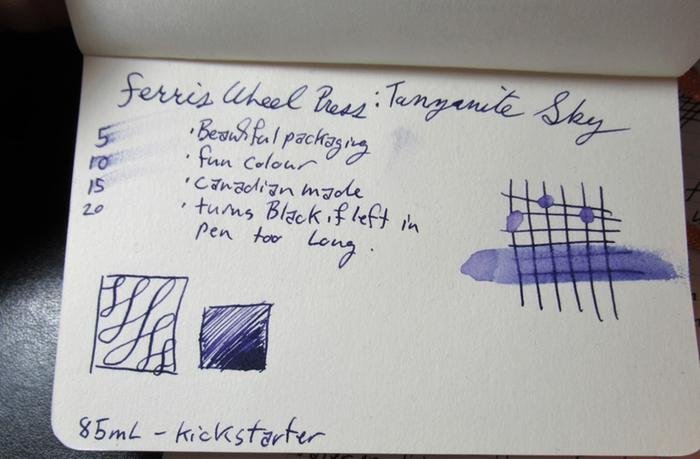 Ferris Wheel Press: Tanzanite Sky
5
10
15
20
· Beautiful packaging
· fun colour
· Canadian made
· turns Black if left in
pen too long.
85mL - Kickstarter